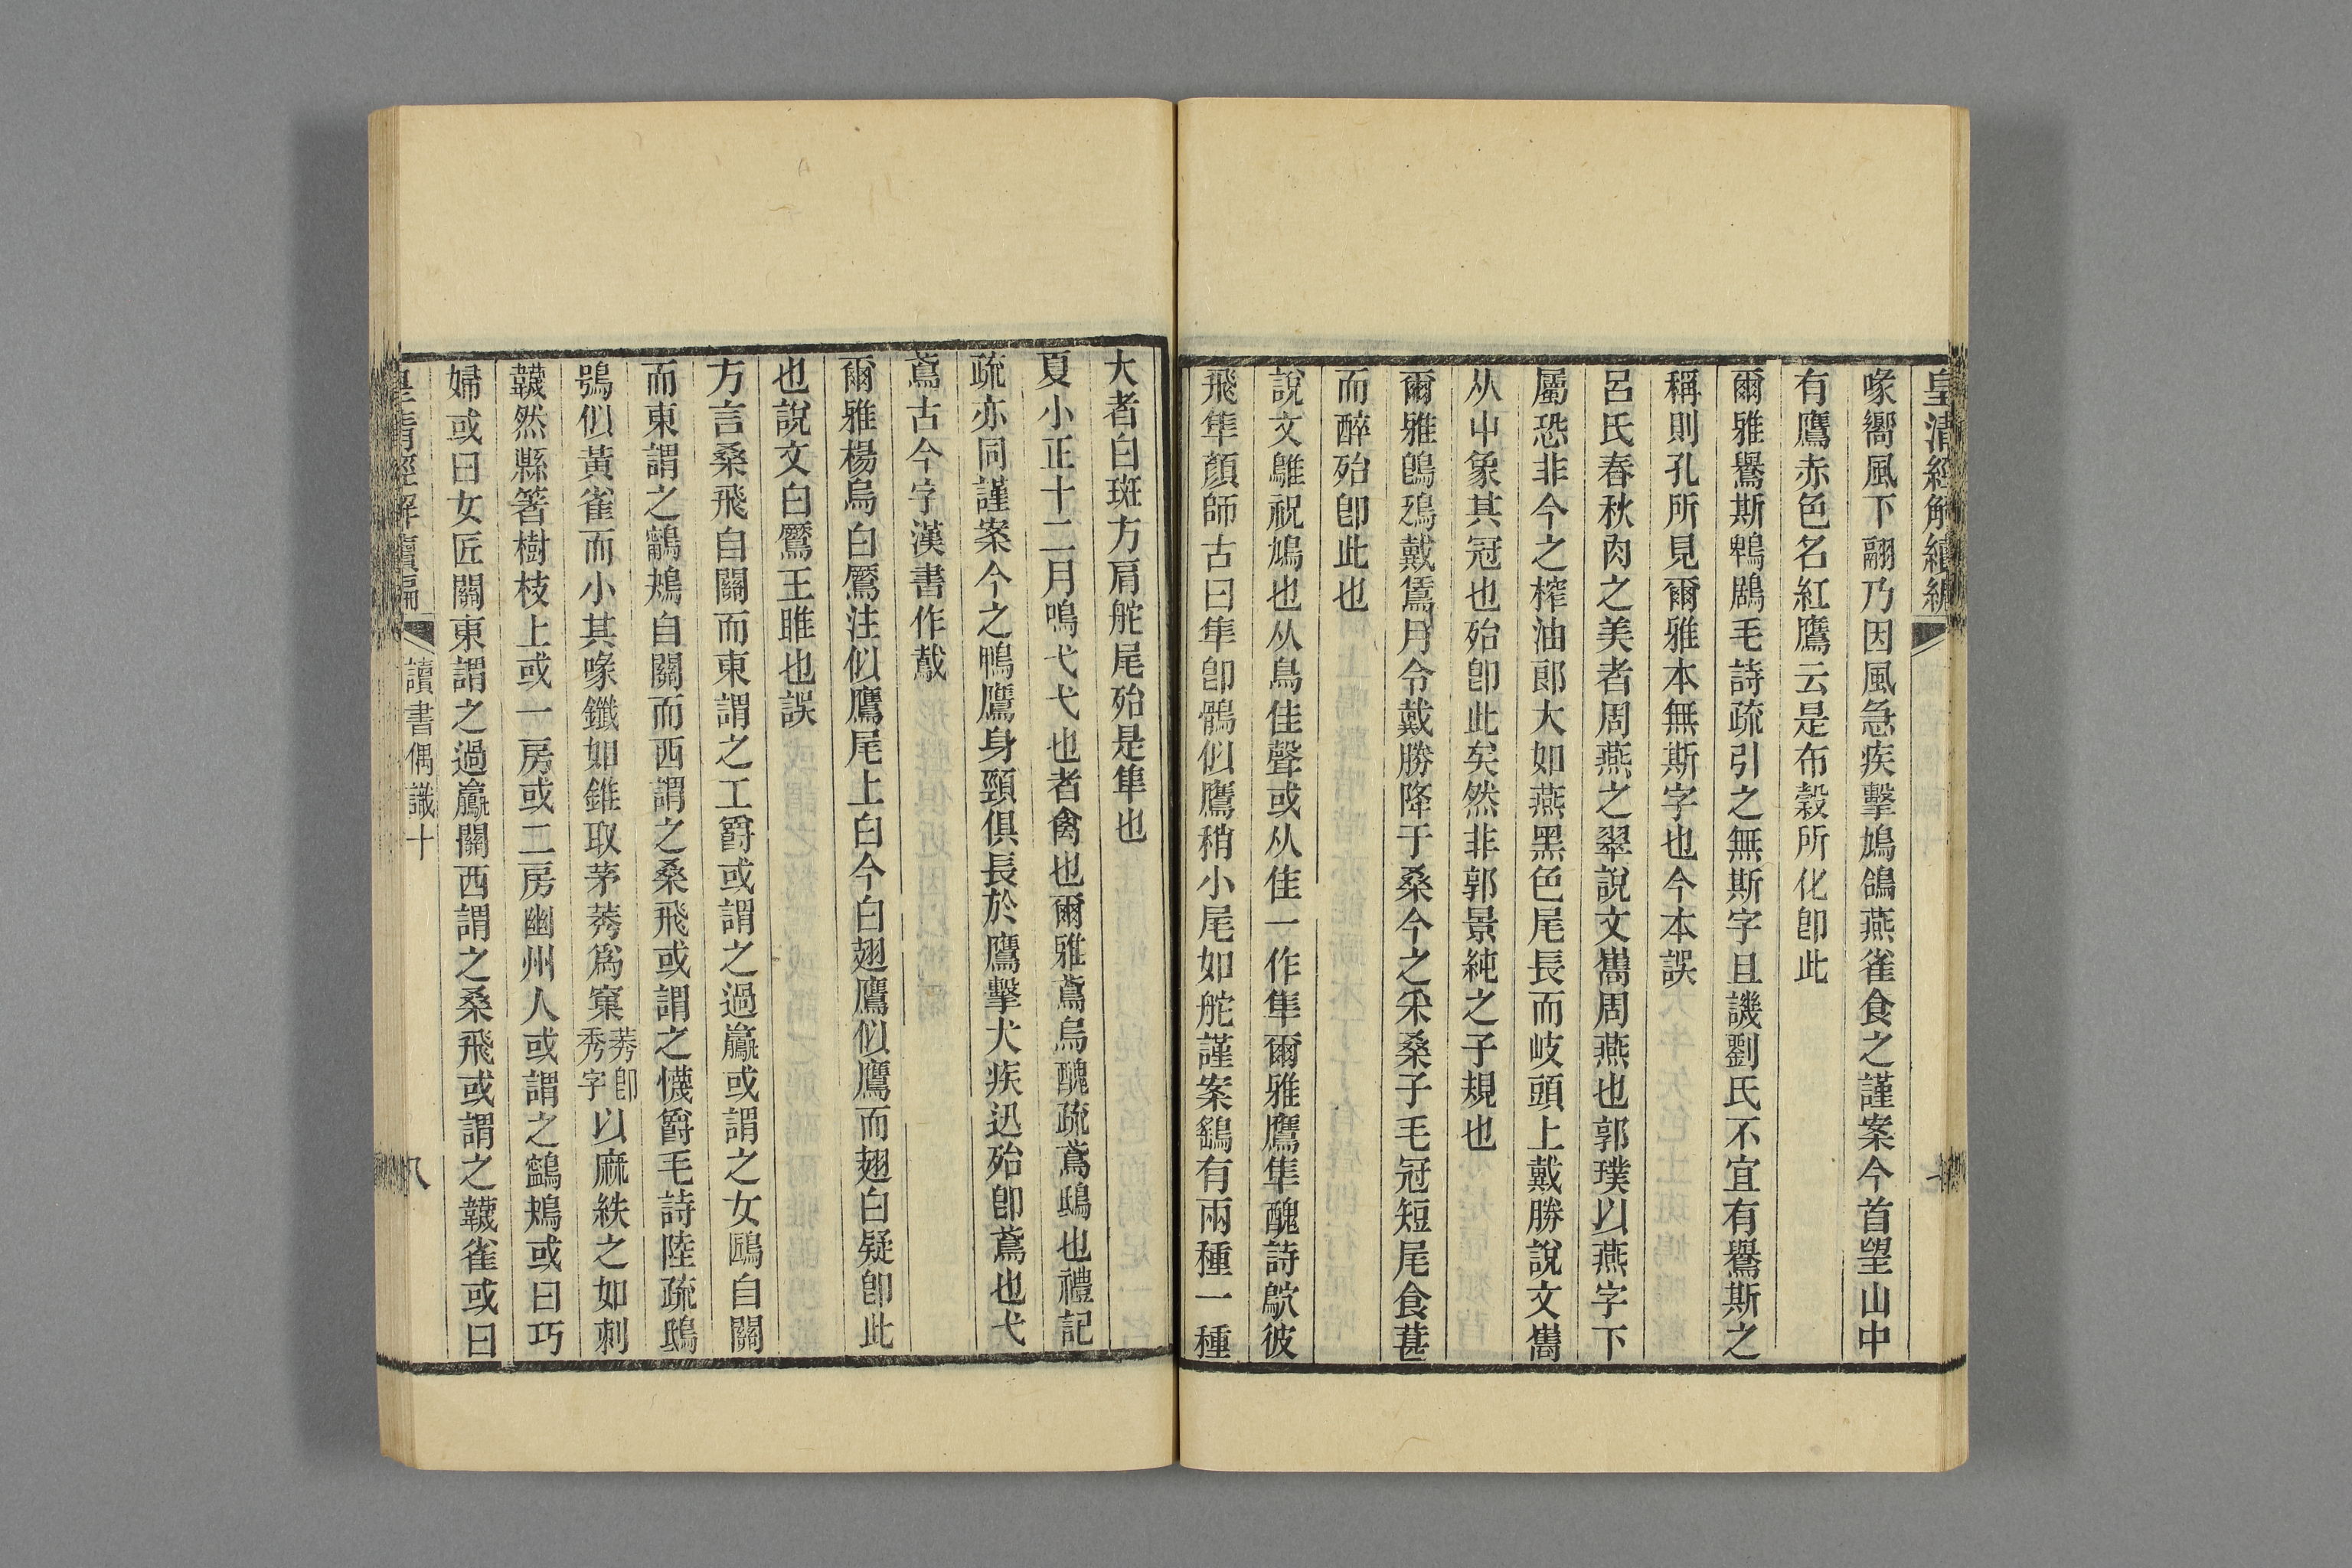 皇清經解續編
喙嚮風下翮乃因風急疾擊鳩鴿燕雀食之謹案今首望山中
有鷹赤色名紅鷹云是布穀所化卽此
爾雅鸒斯鵯鶋毛詩疏引之無斯字且譏劉氏不宜有鸒斯之
稱則孔所見爾雅本無斯字也今本誤
呂氏春秋肉之美者周燕之翠說文巂周燕也郭璞以燕字下
屬恐非今之榨油郎大如燕黑色尾長而岐頭上戴勝說文巂
从屮象其冠也殆卽此矣然非郭景純之子規也
爾雅鵖鴔戴鵀月令戴勝降于桑今之采桑子毛冠短尾食葚
而醉殆卽此也
說文鵻祝鳩也从鳥隹聲或从隹一作隼爾雅鷹隼醜詩鴥彼
飛隼顏師古曰隼卽鶻似鷹稍小尾如舵謹案鷂有兩種一種
大者白斑方肩舵尾殆是隼也
夏小正十二月鳴弋弋也者禽也爾雅鳶烏醜疏鳶鴟也禮記
疏亦同謹案今之鴨鷹身頸俱長於鷹擊犬疾迅殆卽鳶也弋
鳶古今字漢書作䳒
爾雅楊鳥白鷢注似鷹尾上白今白翅鷹似鷹而翅白疑卽此
也說文白鷢王雎也誤
方言桑飛自關而東謂之工爵或謂之過鸁或謂之女鴎自關
而東謂之鸋鴂自關而西謂之桑飛或謂之懱爵毛詩陸疏鴟
鴞似黃雀而小其喙鑯如錐取茅莠爲窠莠卽秀字以麻紩之如刺
韤然縣箸樹枝上或一房或二房幽州人或謂之鸋鴂或曰巧
婦或曰女匠關東謂之過鸁關西謂之桑飛或謂之韤雀或曰
皇清經解續編
讀書偶識十
八